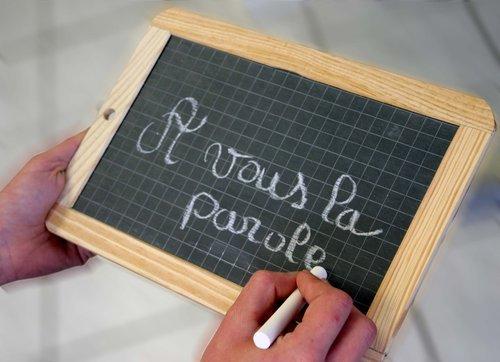 A vous la
parole